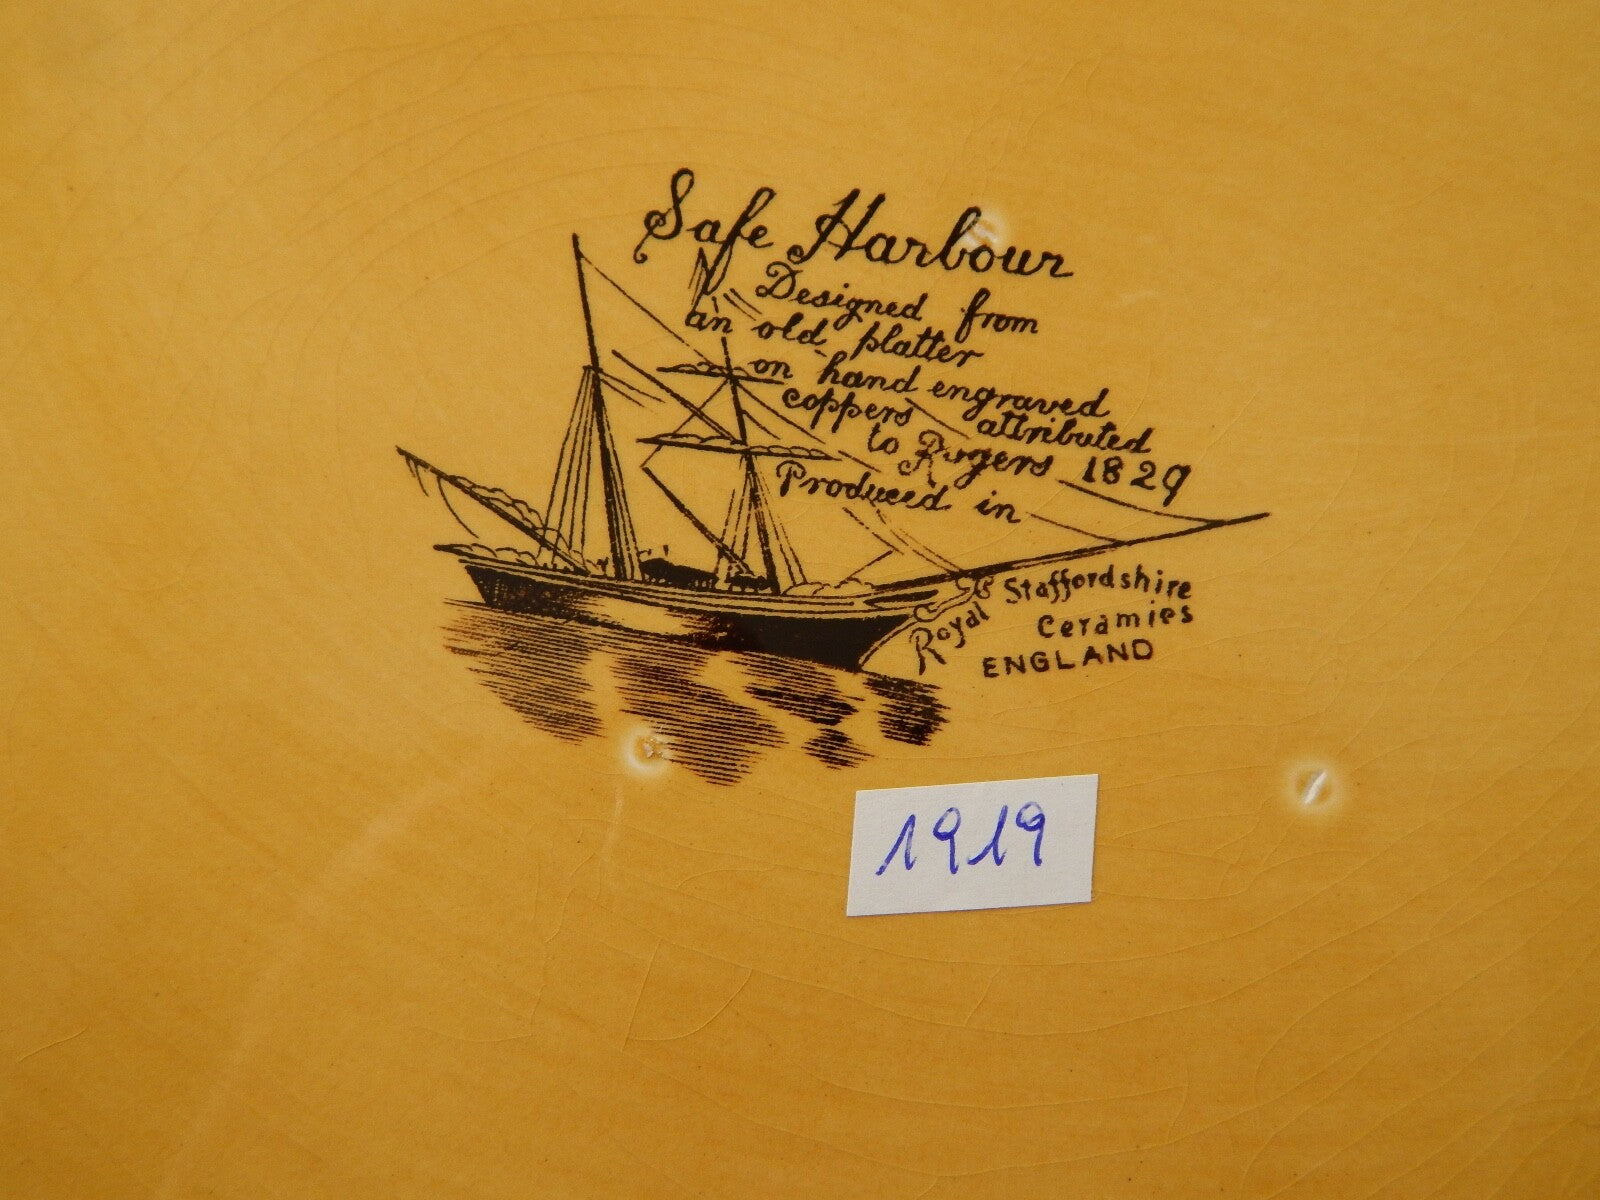 Safe Harbour
Designed from
an old platter
on hand engraved
coppers attributed
to Rogers 1829
Produced in
Royal Staffordshire
Ceramics
ENGLAND
1919